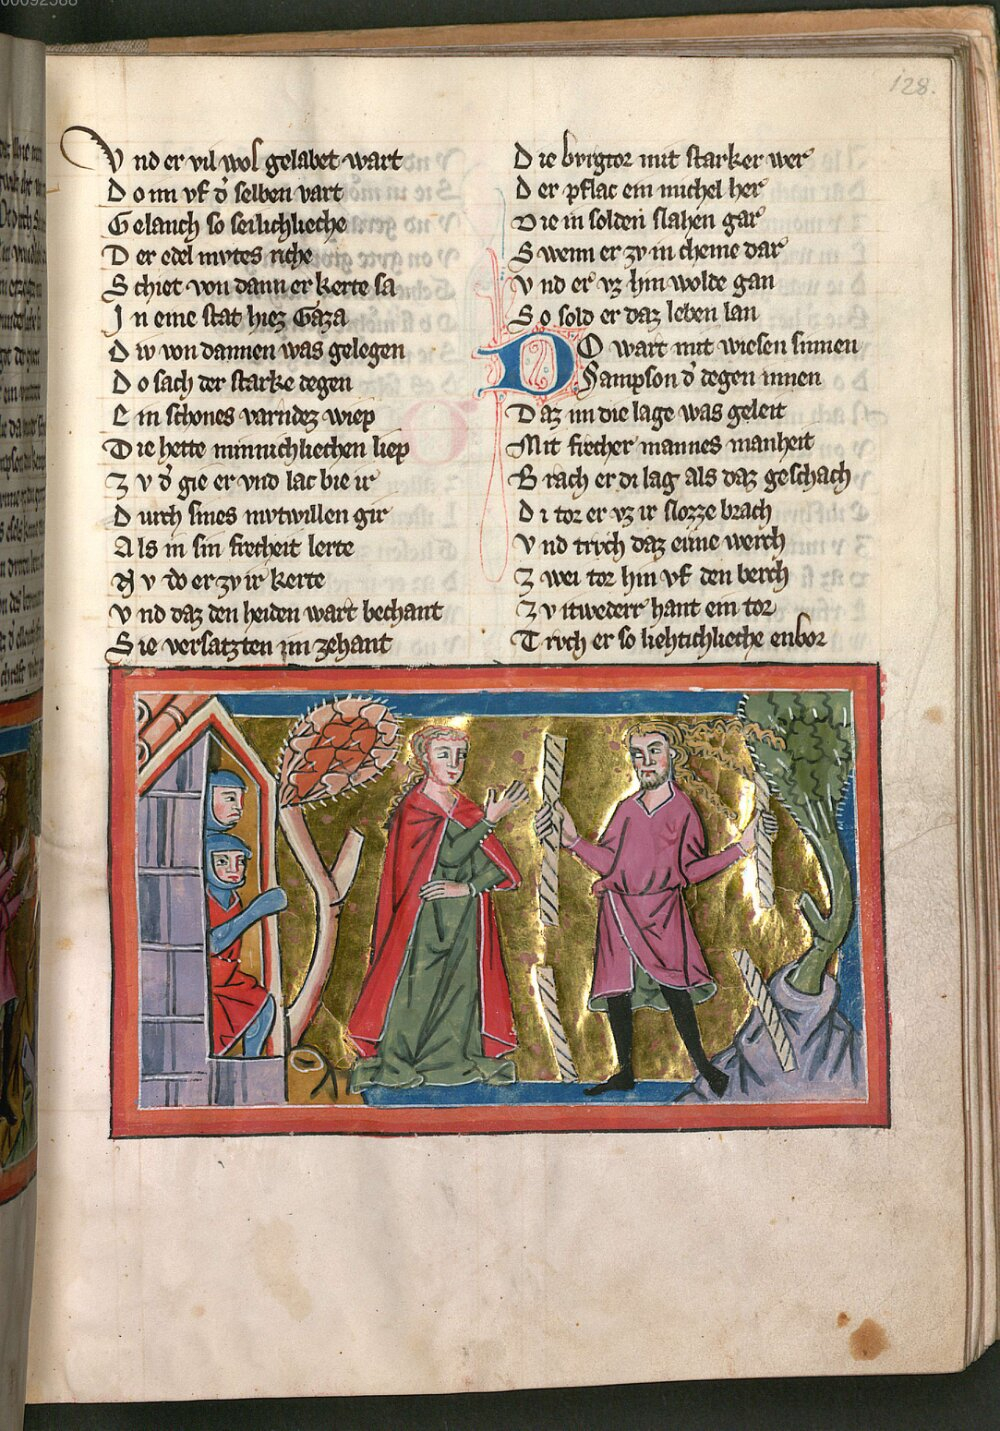 128.
V nd er vil wol gelabet wart
D o im vf d̕ selben vart
G elauch so seilichlieche
D er edel mvtes riche
S chiet von dann er kerte sa
J n eine stat hiez Gaza
D iv von dannen was gelegen
D o sach der starke degen
E in schones varndez wiep
D ie hette minnichliechen liep
Z v d̕ gie er vnd lac bie ir
D urch sines mvtwillen gir
A ls in sin frecheit lerte
N v do er zv ir kerte
V nd daz den heiden wart bechant
S ie versatzten im zehant
D ie bvrgtor mit starker wer
D er pflac ein michel her
D ie in solden slahen gar
S wenn er zv in cheme dar
V nd er vz hin wolde gan
S o sold er daz leben lan
D O wart mit wiesen sinnen
Sampson d̕ degen innen
D az im die lage was geleit
M it frecher mannes manheit
B rach er di lag als daz geschach
D i tor er vz ir slozze brach
V nd trvch daz eine werch
Z wei tor hin vf den berch
Z v itwederr hant ein tor
T rvch er so liehtichlieche enbor